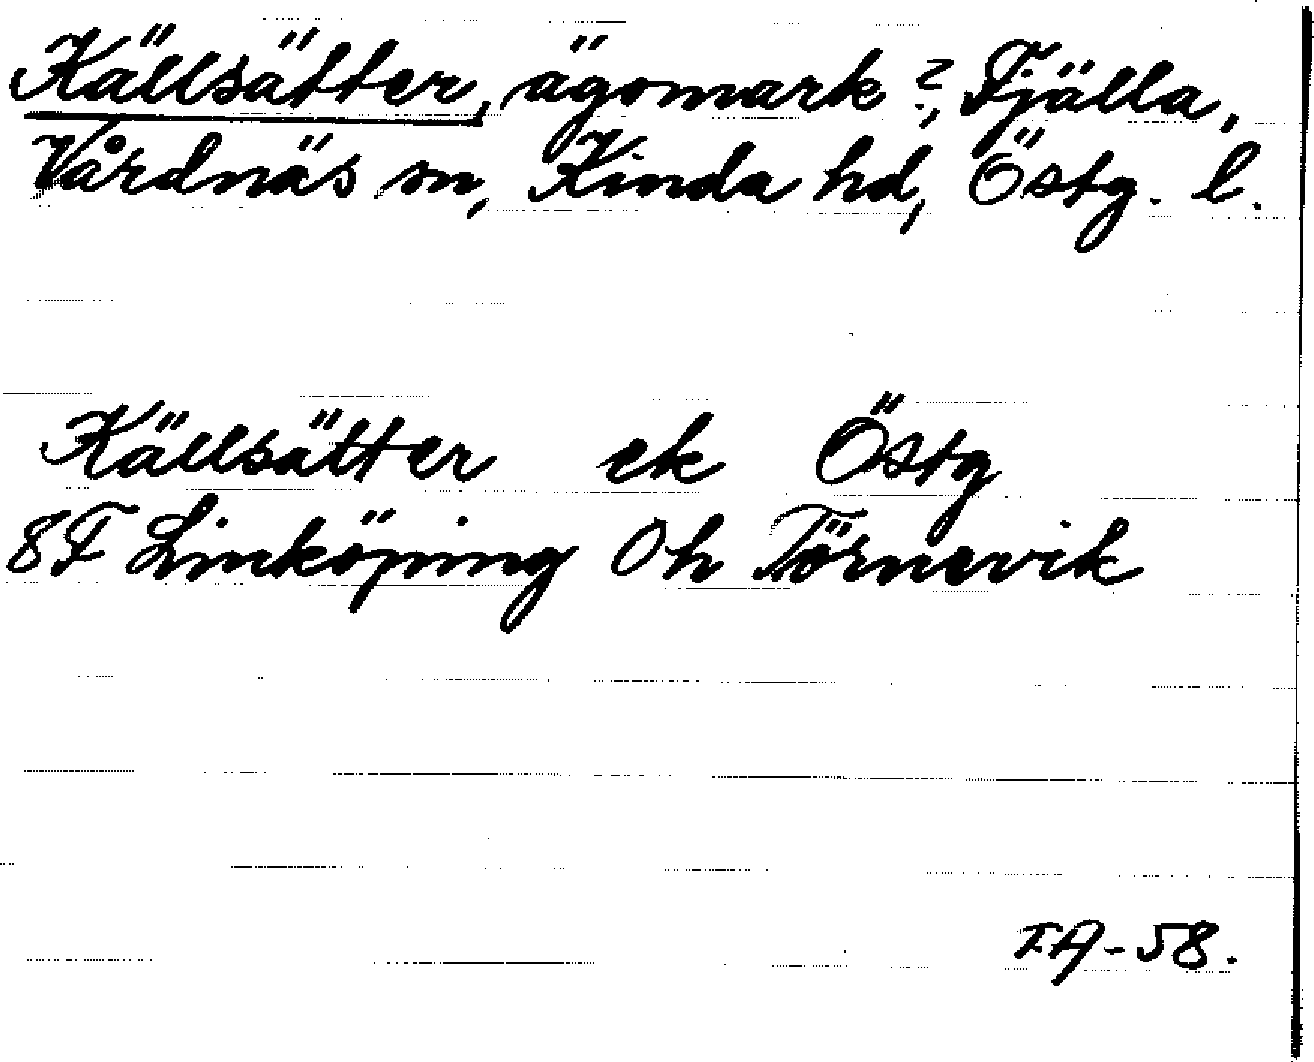 Källsätter, ägomark?, Fjälla,
Vårdnäs sn, Kinda hd, Östg. l.
Källsätter ek Östg
8F Linköping Oh Törnevik
FA-58.